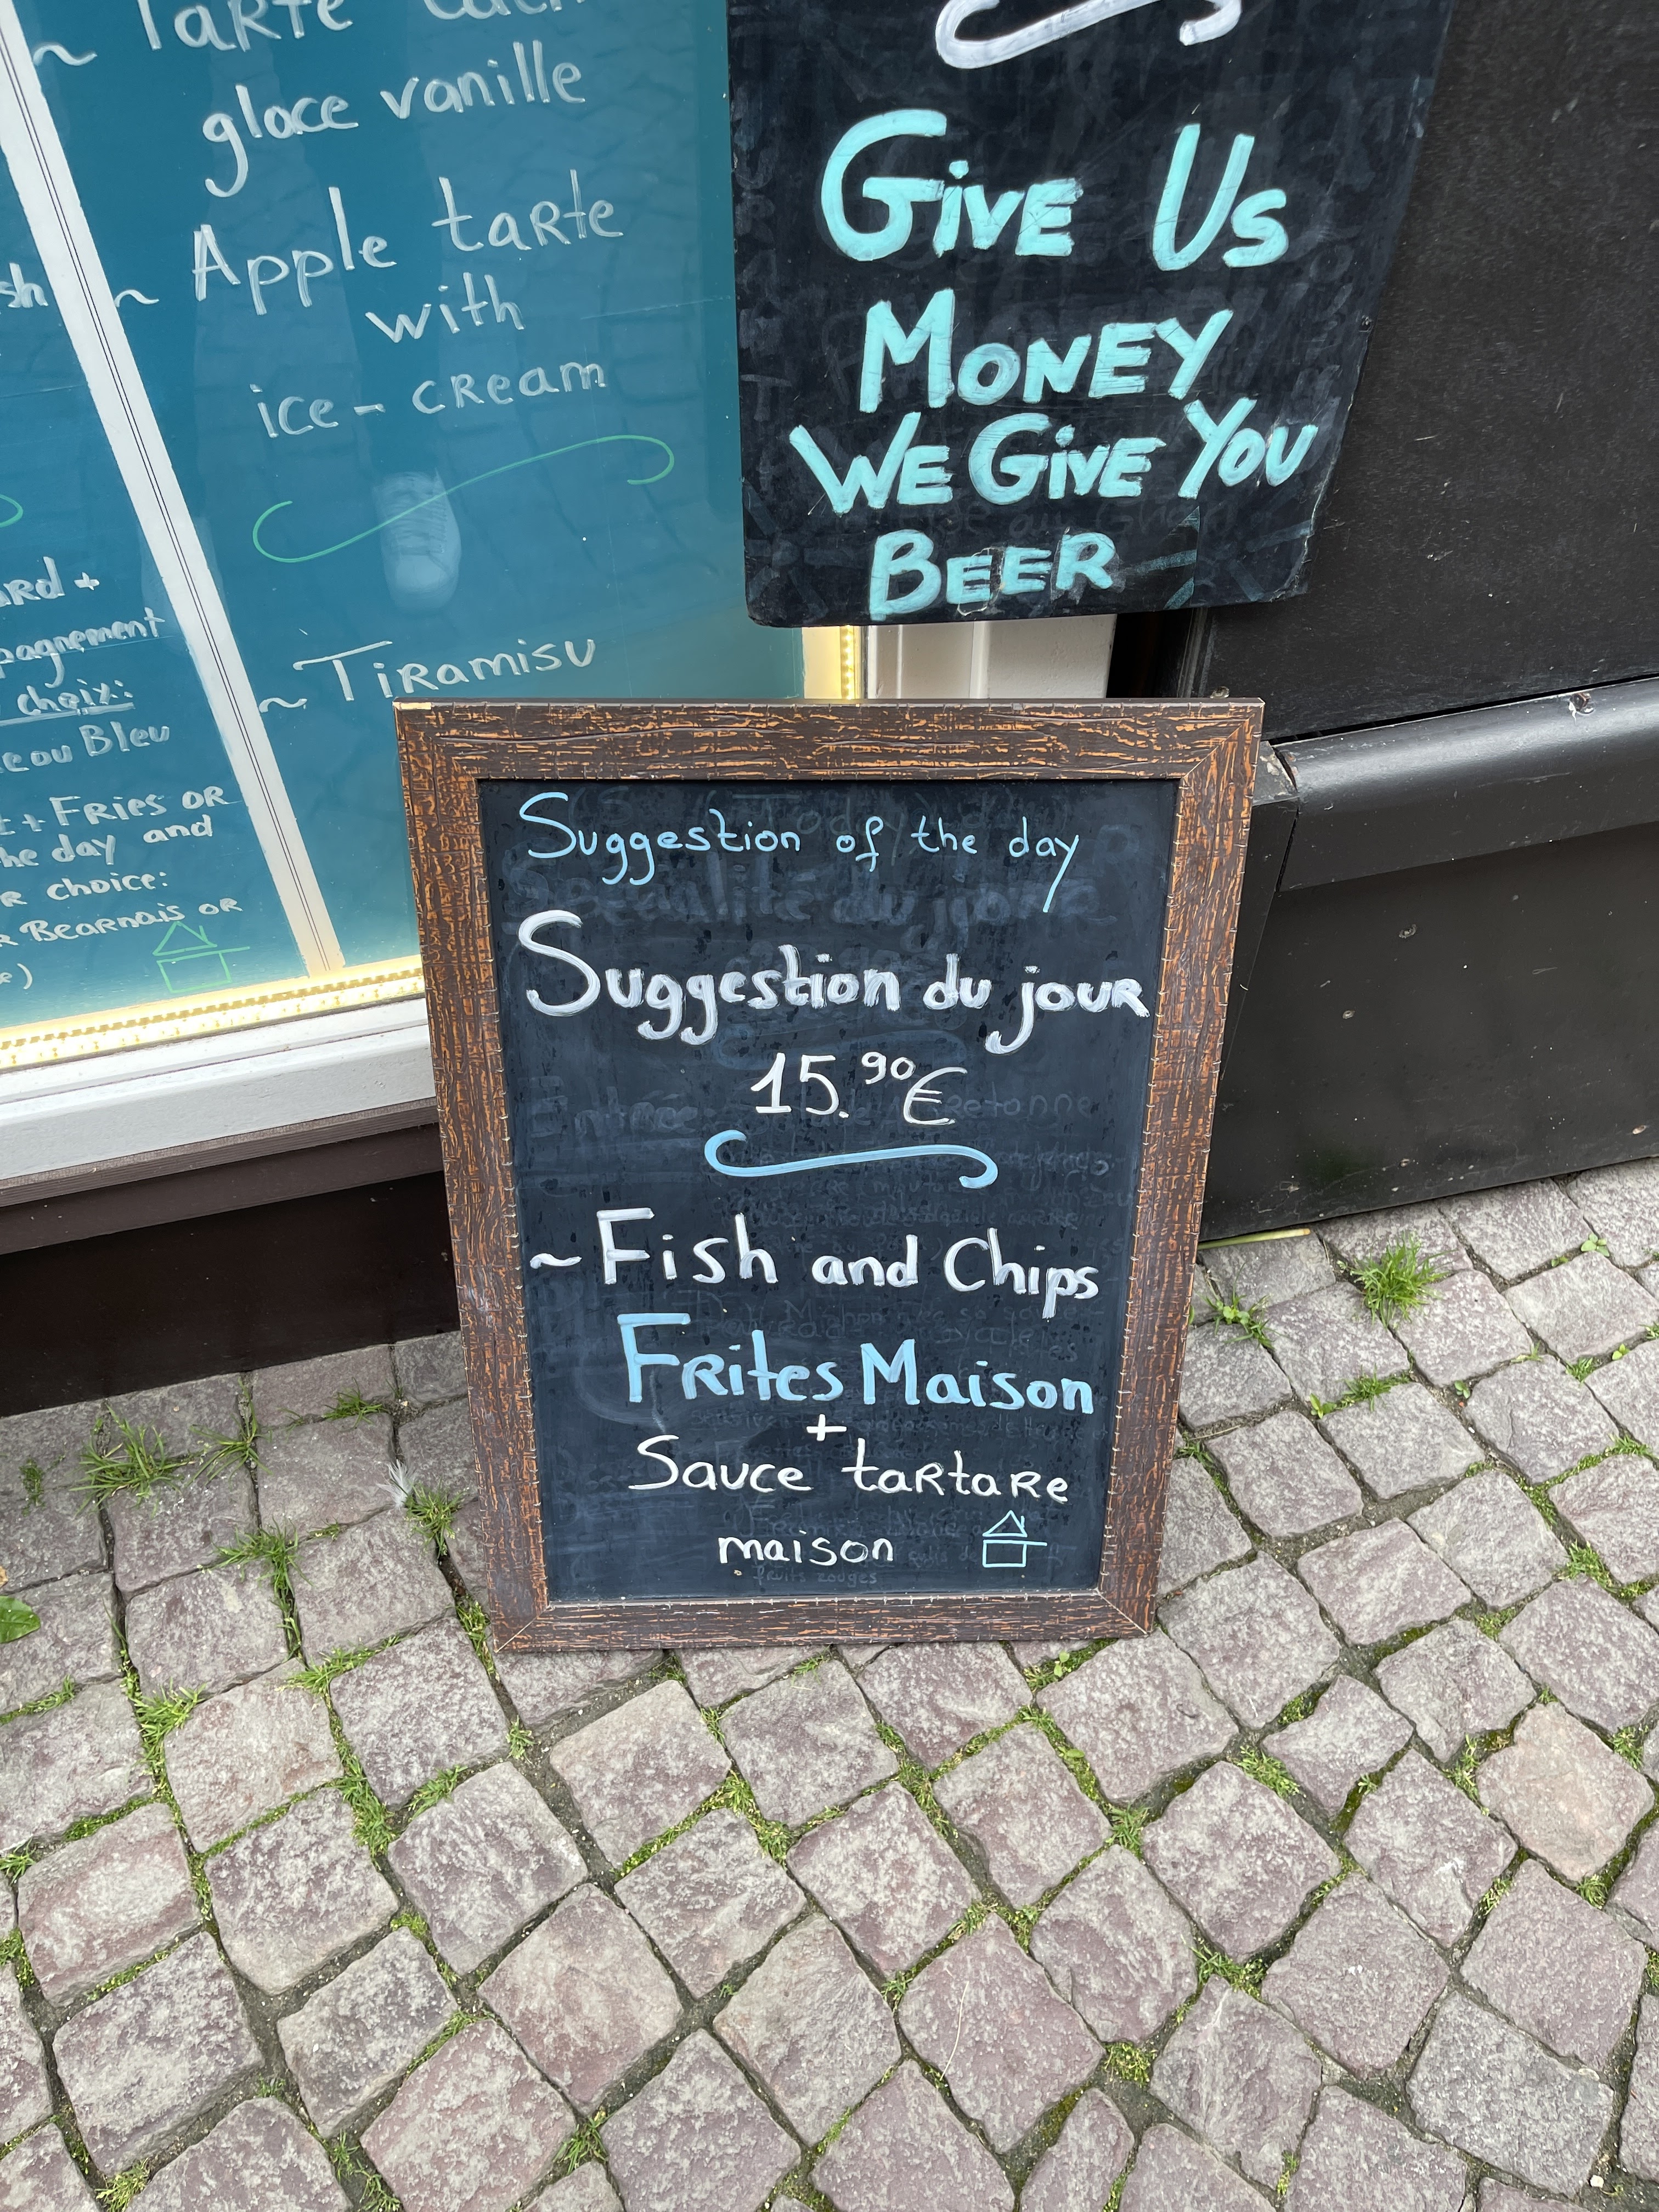 ~ Tarte
glace vanille
~ Apple tarte
with
ice-cream
~ Tiramisu
+
choix:
Bleu
+ Fries or
the day and
choice:
Bearnais or
Give Us
Money
We Give You
Beer
Suggestion of the day
Suggestion du jour
15.90€
~ Fish and Chips
Frites Maison
+
Sauce tartare
maison